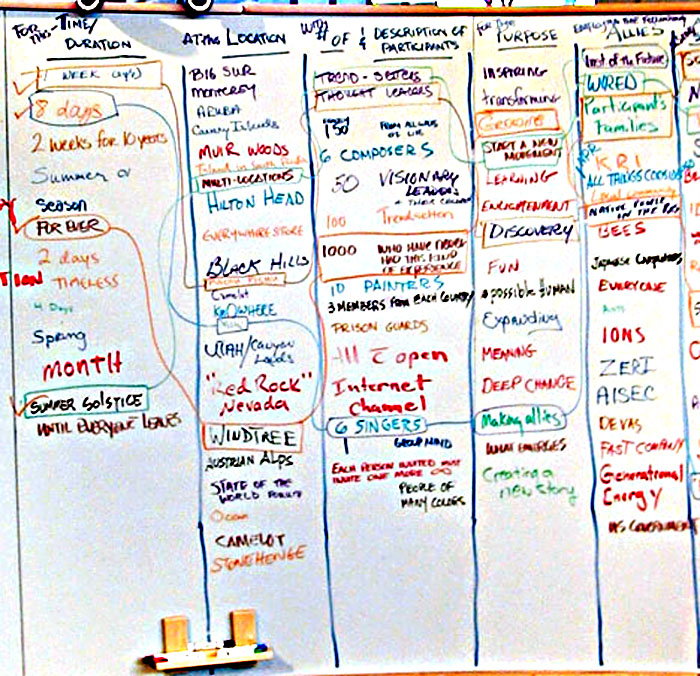 FOR THIS - TIME/
DURATION
1 WEEK
8 days
2 weeks for 10 years
Summer or
season
FOR EVER
2 days
TION
TIMELESS
4 Days
Spring
month
SUMMER SOLSTICE
UNTIL EVERYONE LEAVES
AT THIS LOCATION
BIG SUR
monterey
ARUBA
Canary Islands
MUIR WOODS
Island in South
MULTI-LOCATIONS
HILTON HEAD
EVERYWHERE STORE
BLACK HILLS
Camelot
KNOWHERE
UTAH/Canyon
Lands
"Red Rock"
Nevada
WINDTREE
AUSTRIAN ALPS
STATE OF THE
WORLD FORUM
Ocean
CAMELOT
STONEHENGE
WITH
# OF & DESCRIPTION OF
PARTICIPANTS
TREND-SETTERS
THOUGHT LEADERS
150 FROM ALL WALKS
OF LIFE
6 COMPOSERS
50 VISIONARY
LEADERS
100 Trendsetters
1000 WHO HAVE NEVER
HAD THIS KIND
OF EXPERIENCE
10 PAINTERS
3 MEMBERS FROM EACH COUNTRY
PRISON GUARDS
All open
Internet
Channel
6 SINGERS
1 GROUP MIND
EACH PERSON INVITED MUST
INVITE ONE MORE
PEOPLE OF
MANY COLORS
FOR THIS
PURPOSE
INSPIRING
transforming
START A NEW
MOVEMENT
LEARNING
ENLIGHTENMENT
DISCOVERY
FUN
possible human
Expanding
MEANING
DEEP CHANGE
Making allies
WHAT EMERGES
Creating a
new story
EMPLOYING THE FOLLOWING
ALLIES
Inst of the Future
WIRED
Participant's
Families
KRI
ALL THINGS
NATIVE
BEES
Japanese Computers
EVERYONE
Ants
IONS
ZERI
AISEC
DEVAS
FAST COMPANY
Generational
Energy
US GOVERNMENT